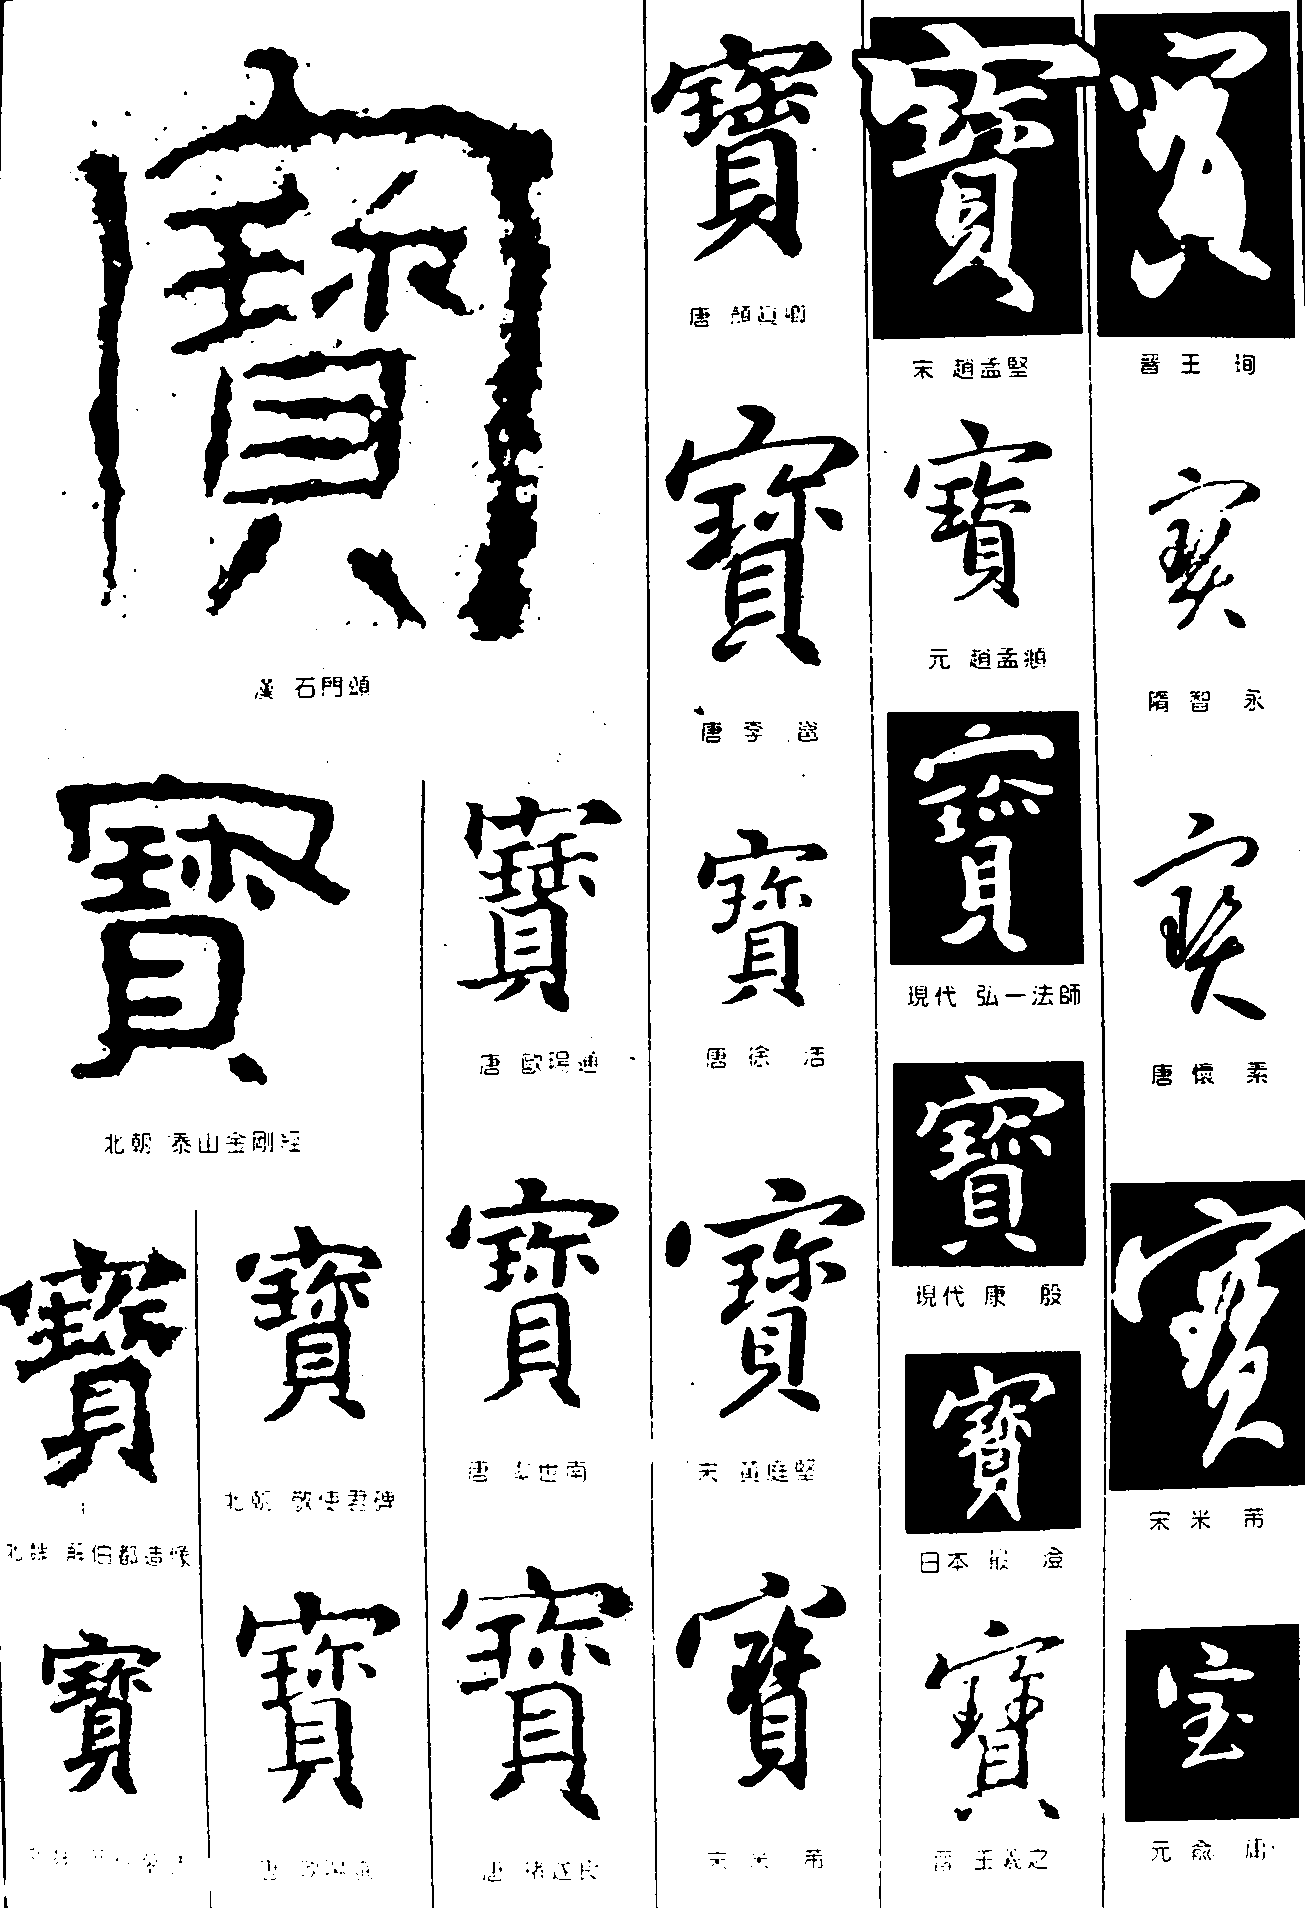 寶
漢 石門頌
寶
北朝 泰山金剛經
寶
造像
寶
寶
北朝 敬使君碑
寶
唐
寶
唐 歐陽通
寶
唐 虞世南
寶
唐 褚遂良
寶
唐 顏真卿
寶
唐 李邕
寶
唐 徐浩
寶
宋 黃庭堅
寶
宋 米芾
寶
宋 趙孟堅
寶
元 趙孟頫
寶
現代 弘一法師
寶
現代 康殷
寶
日本
寶
晉 王羲之
寶
晉 王珣
寶
隋 智永
寶
唐 懷素
寶
宋 米芾
宝
元 俞庸